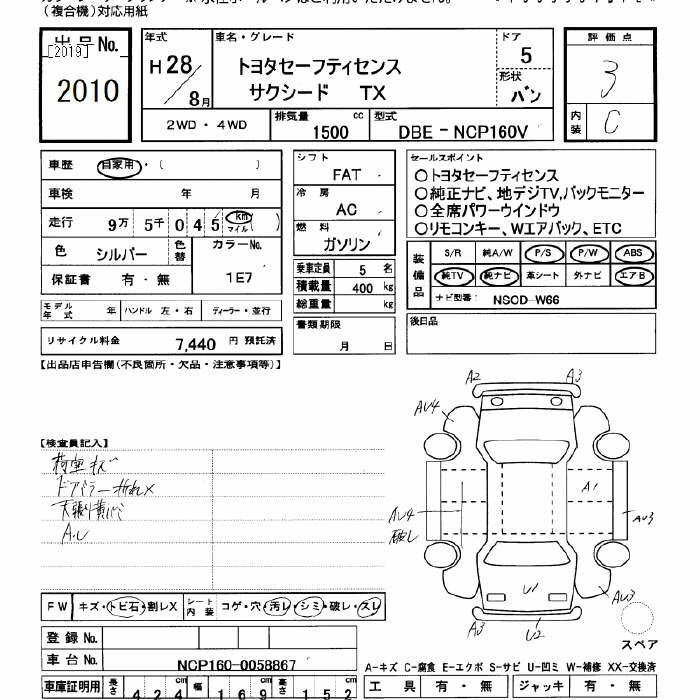 （複合機）対応用紙
出品No.
[2019]
2010
年式
H28/8月
車名・グレード
トヨタセーフティセンス
サクシード TX
ドア
5
形状
バン
2WD・4WD
排気量 1500 cc
型式 DBE-NCP160V
評価点
3
内装 C
車歴 自家用・（ ）
車検 年 月
走行 9万 5千 0 4 5 km マイル ( )
色 シルバー 色替 カラーNo.
保証書 有・無 1E7
モデル年式 年 ハンドル 左・右 ディーラー・並行
リサイクル料金 7,440 円 預託済
シフト
FAT
冷房
AC
燃料
ガソリン
乗車定員 5 名
積載量 400 kg
総重量 kg
書類期限
月 日
セールスポイント
○トヨタセーフティセンス
○純正ナビ、地デジTV,バックモニター
○全席パワーウインドウ
○リモコンキー、Wエアバック、ETC
装備品
S/R 純A/W P/S P/W ABS
純TV 純ナビ 革シート 外ナビ エアB
ナビ型番: NSCD-W66
後日品
【出品店申告欄(不良箇所・欠品・注意事項等)】
【検査員記入】
荷室キズ
ドアミラー折れX
A.U
A2 A3
AU4
A1
AU4
破レ
AU3
U1
AU3
A3 U2
スペア
FW キズ・トビ石・割レX シート内装 コゲ・穴・汚レ・シミ・破レ・スレ
登録No.
車台No. NCP160-0058867
A-キズ C-腐食 E-エクボ S-サビ U-凹ミ W-補修 XX-交換済
車庫証明用 長さ 4 2 4 幅 1 6 9 高さ 1 5 2
工具 有・無 ジャッキ 有・無